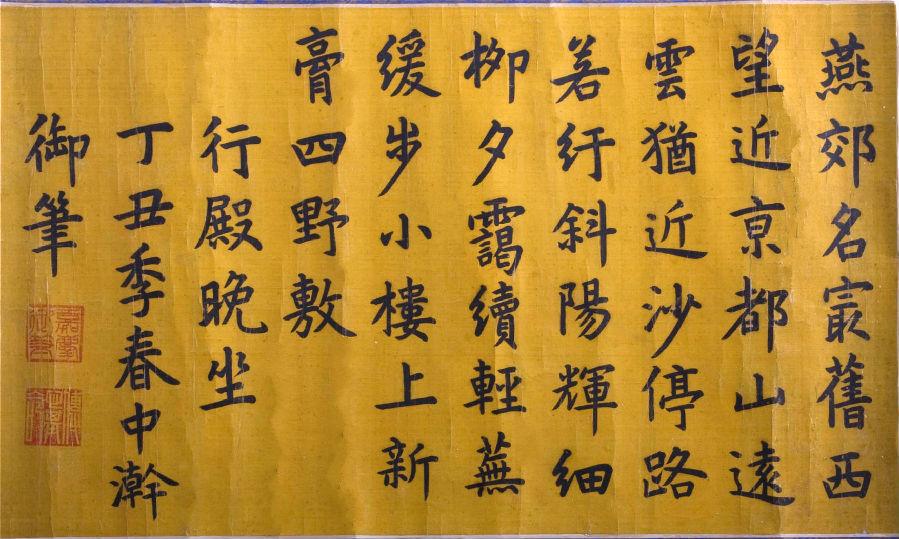 燕郊名㝡舊西
望近亰都山遠
雲猶近沙停路
若紆斜陽輝細
栁夕靄續輕蕪
緩步小樓上新
膏四野敷
行殿晚坐
丁丑季春中澣
御筆
嘉慶御筆